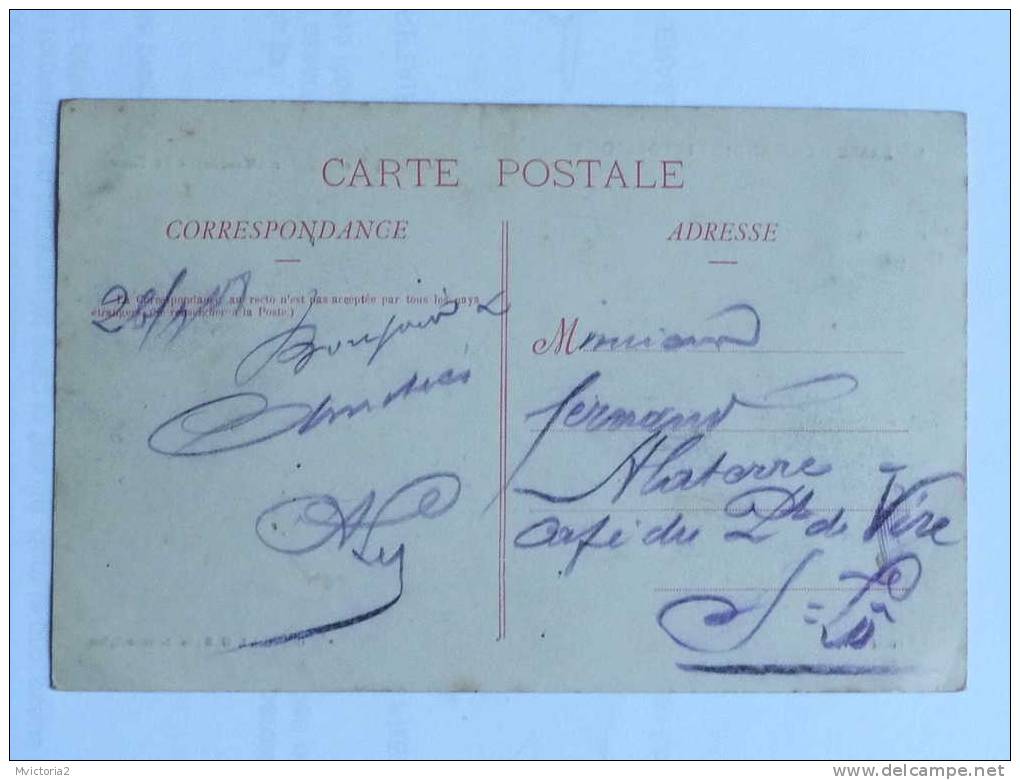 CARTE POSTALE
CORRESPONDANCE
La Correspondance au recto n'est pas acceptée par tous les pays
étrangers (Se renseigner à la Poste.)
Bonjour
Amitiés
ADRESSE
Monsieur
Fernand
Alaterre
Café du Pt de Vire
St-Lô
Mvictoria2
delcampe.net